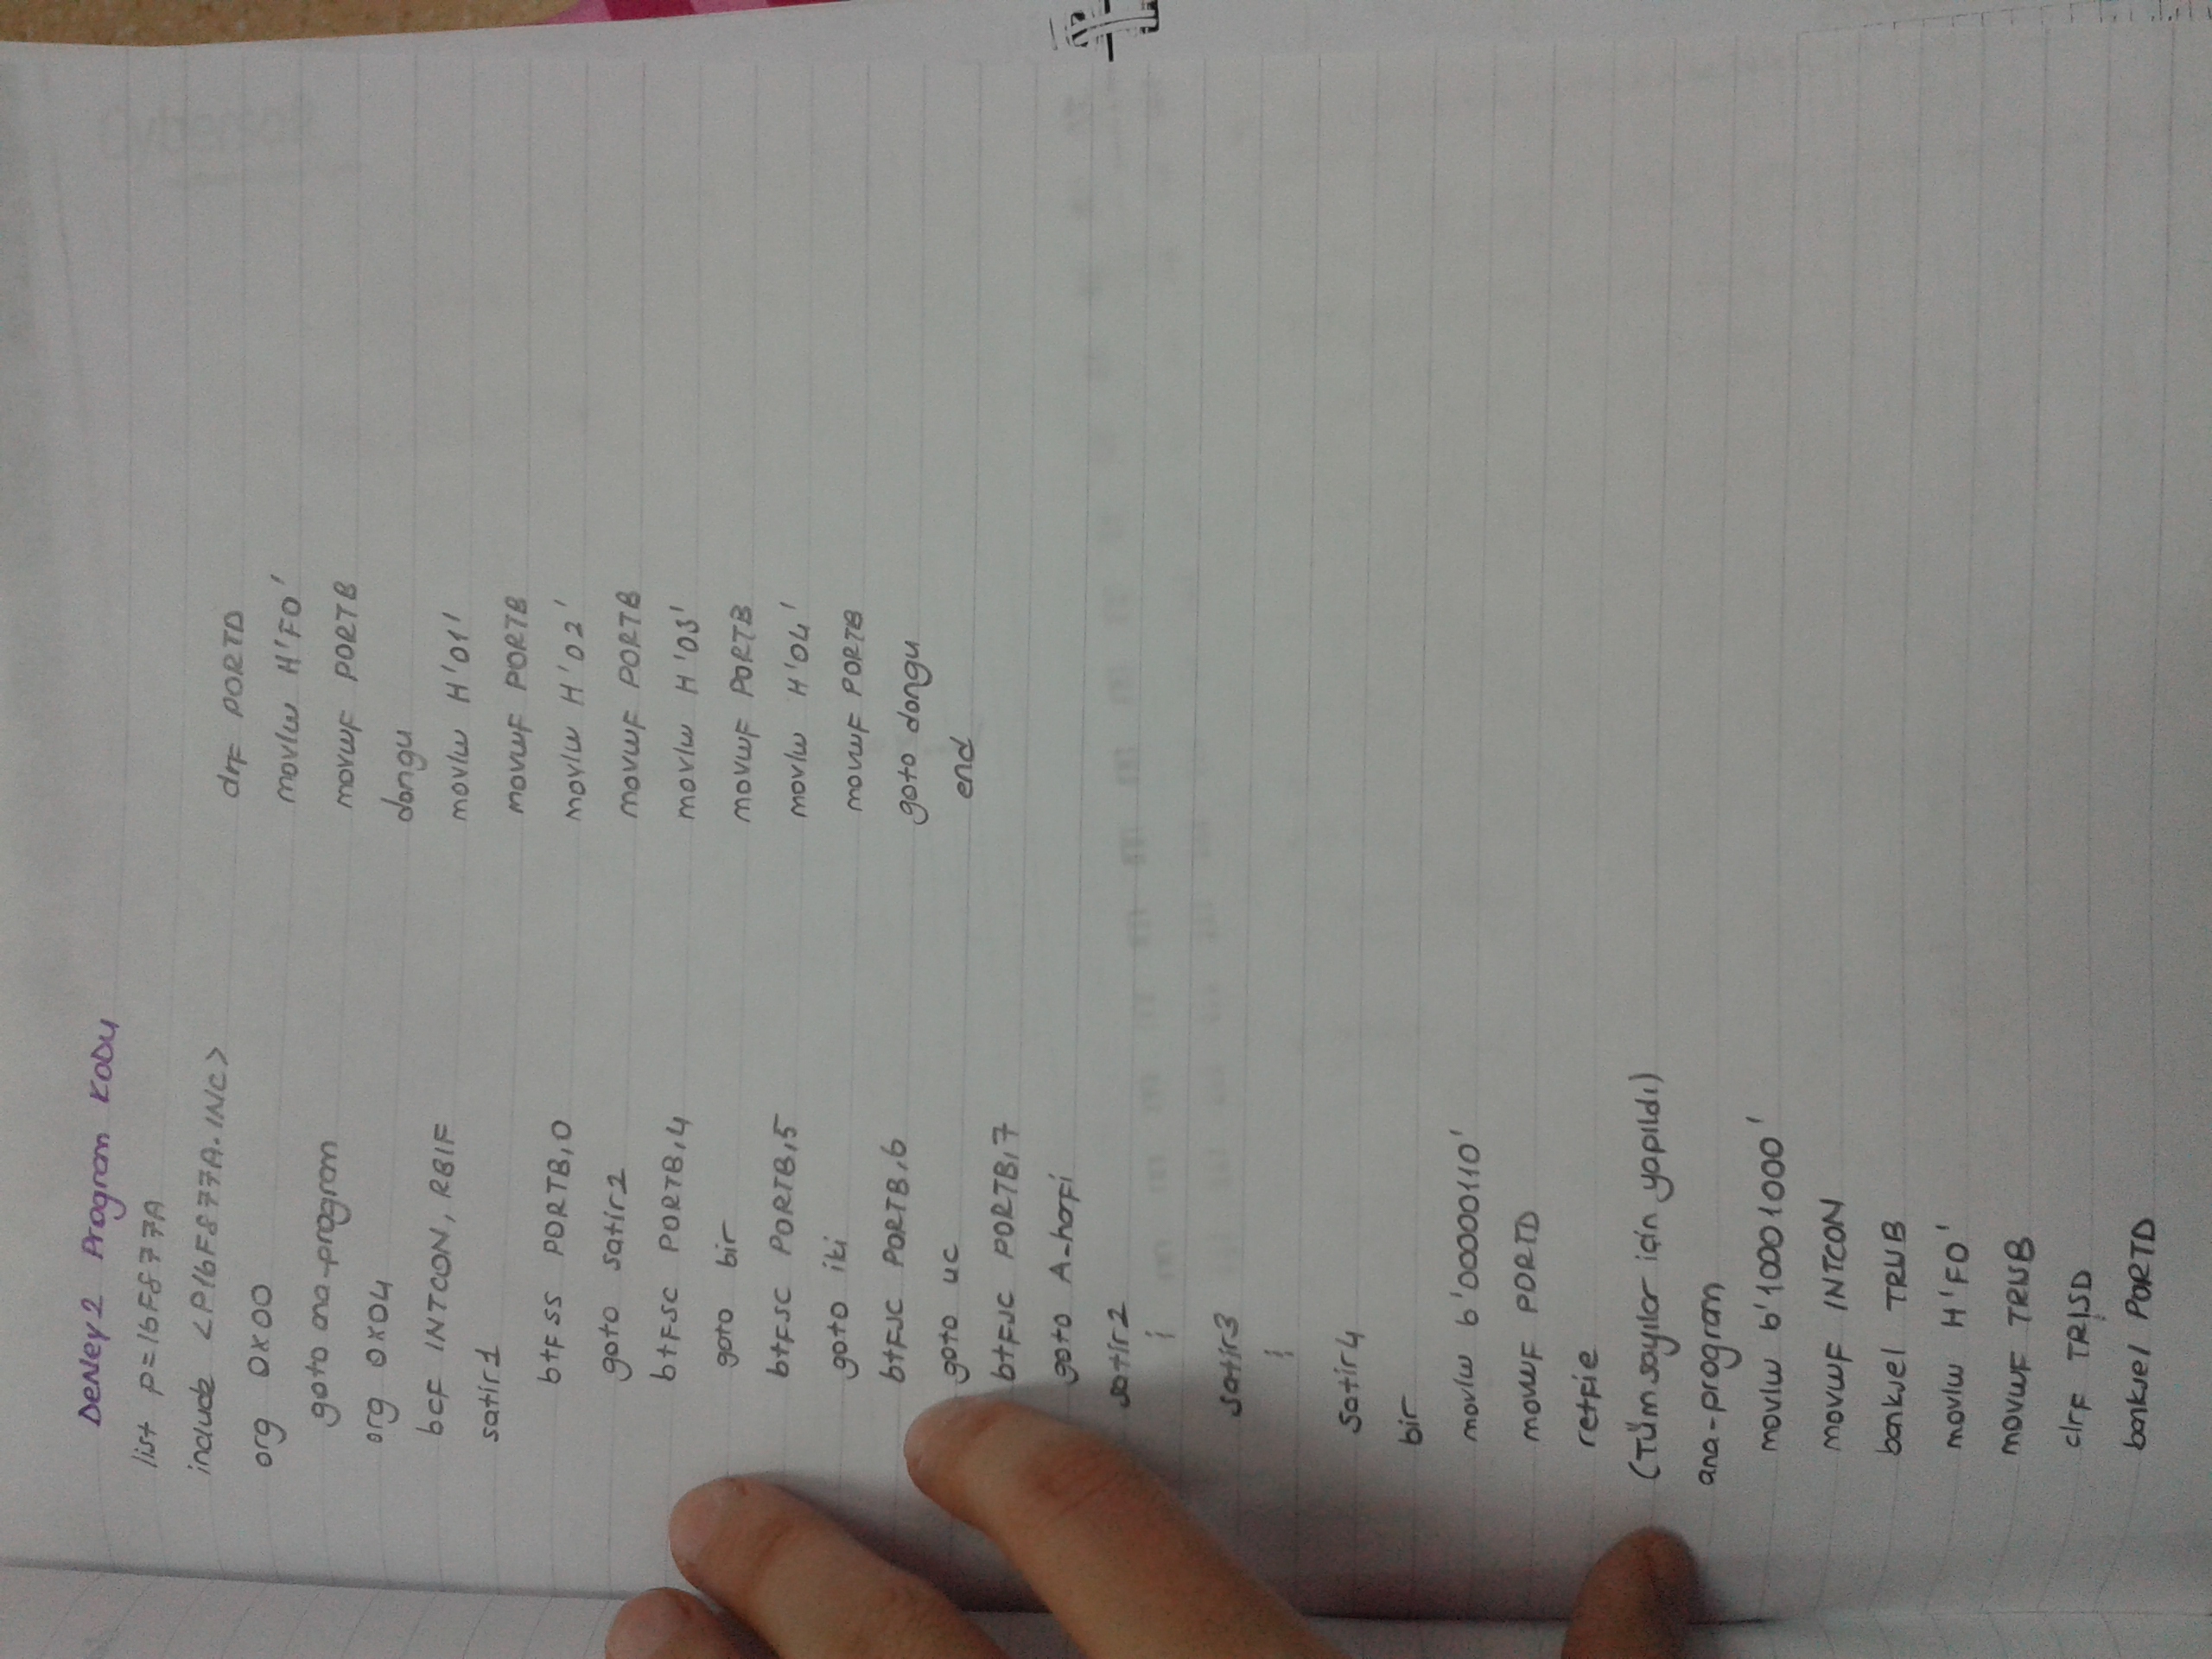 DeNey2 Program KoDu
list p=16F877A
include <P16F877A.INC>
org 0x00
goto ana-program
org 0x04
bcF INTCON, RBIF
satir1
btFss PORTB,0
goto satir2
btFsc PORTB,4
goto bir
btFsc PORTB,5
goto iki
btFsc PORTB,6
goto uc
btFsc PORTB,7
goto A-harfi
satir2
satir3
satir4
bir
movlw b'00000110'
movwF PORTD
retFie
(Tüm sayılar için yapıldı)
ana-program
movlw b'10001000'
movwF INTCON
banksel TRISB
movlw H'F0'
movwF TRISB
clrF TRISD
banksel PORTD
clrF PORTD
movlw H'F0'
movwF PORTB
dongu
movlw H'01'
movwF PORTB
movlw H'02'
movwF PORTB
movlw H'03'
movwF PORTB
movlw H'04'
movwF PORTB
goto dongu
end